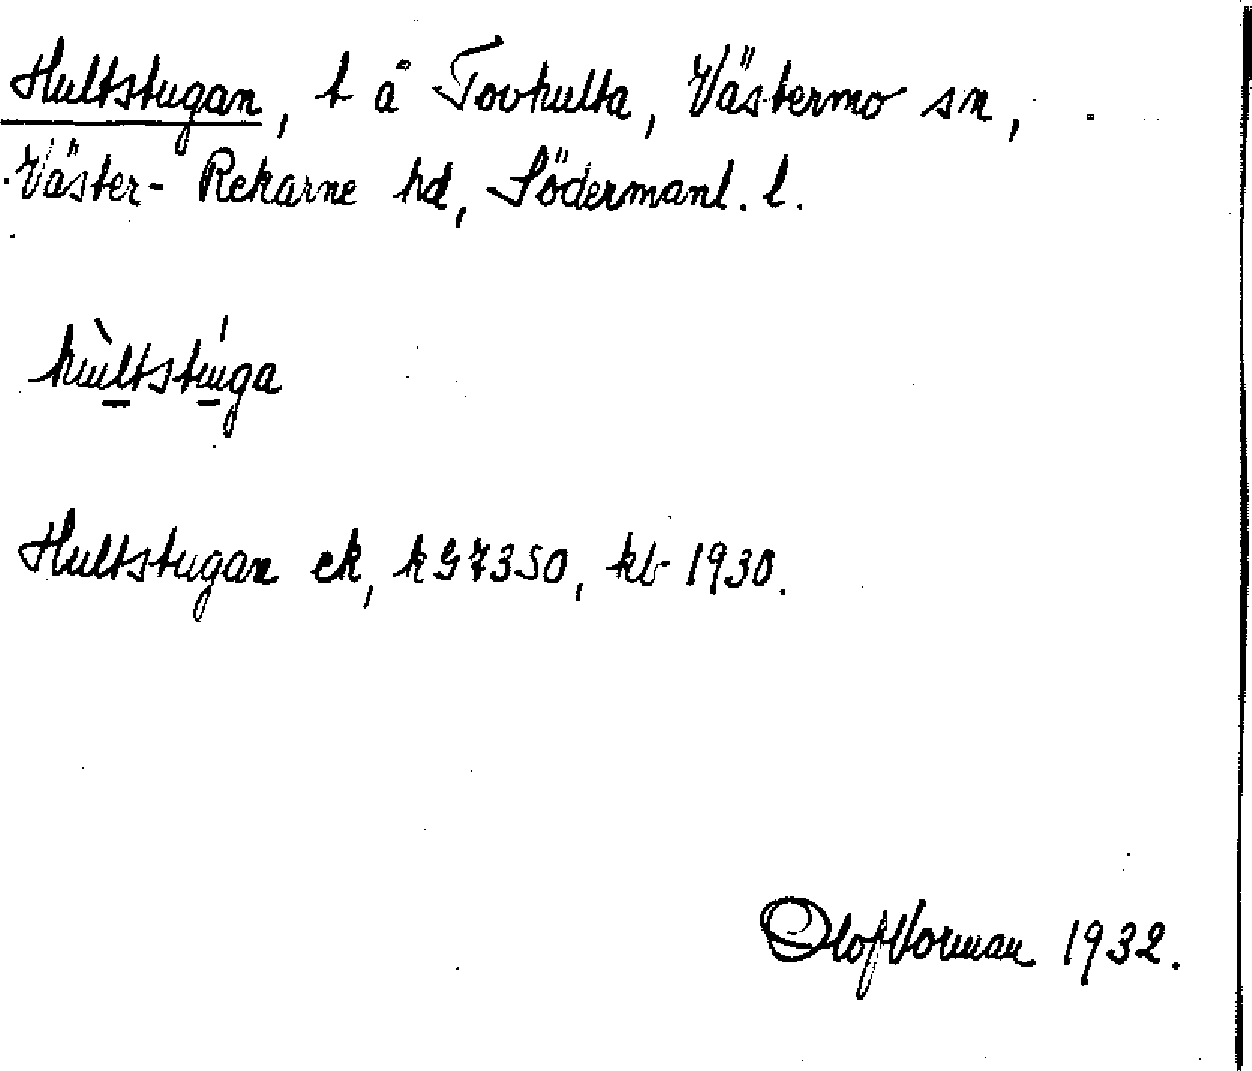 Hultstugan, t å Tovhulta, Västermo sn,
Väster-Rekarne hd, Södermanl. l.
hùltstúga
Hultstugan ek, k G7350, kb 1930.
Olof Vorman 1932.